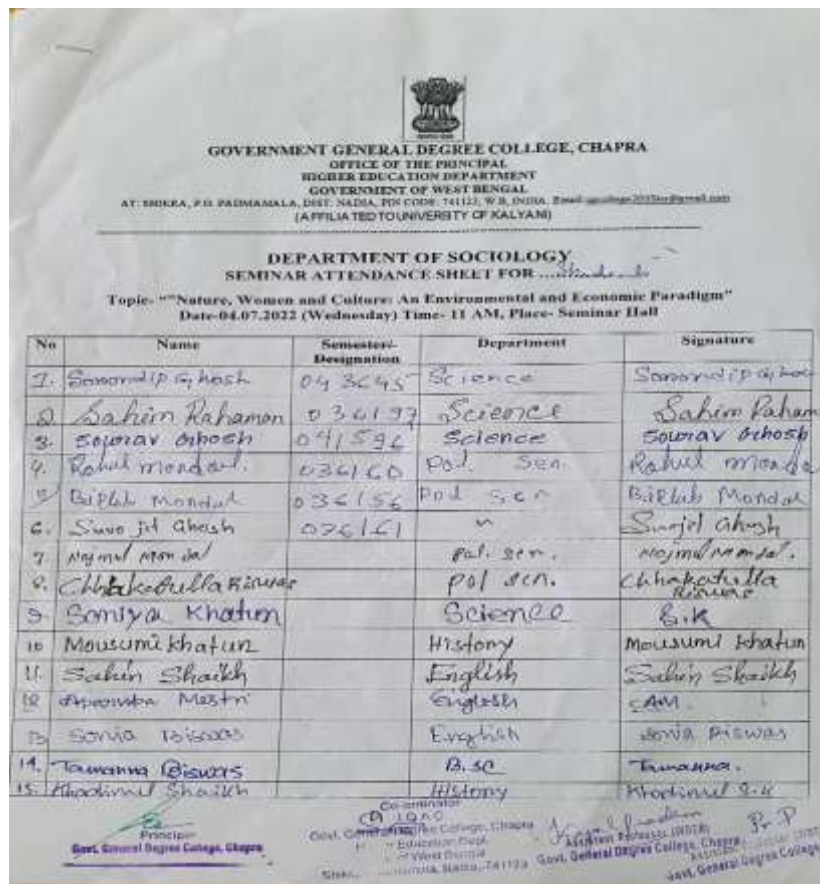 GOVERNMENT GENERAL DEGREE COLLEGE, CHAPRA
OFFICE OF THE PRINCIPAL
HIGHER EDUCATION DEPARTMENT
GOVERNMENT OF WEST BENGAL
AT: SHIKRA, P.O. PADMAMALA, DIST: NADIA, PIN CODE: 741123, W.B, INDIA.
(AFFILIATED TO UNIVERSITY OF KALYANI)
DEPARTMENT OF SOCIOLOGY
SEMINAR ATTENDANCE SHEET FOR ...
Topic- ""Nature, Women and Culture: An Environmental and Economic Paradigm"
Date-04.07.2022 (Wednesday) Time- 11 AM, Place- Seminar Hall
No Name Semester/-Designation Department Signature
1. Somondip Ghosh 043645 Science Somondip
2 Sahim Rahaman 036197 Science Sahim Raham
3. Sourav Ghosh 041596 Science Sourav Ghosh
4. Rahul mondal. 036160 Pol. Sen. Rahul monda
5 Biplab Mondal 036156 Pol Sen Biplab Mondal
6. Suvojit Ghosh 036161 " Ghosh
7. Najmul Mondal Pol. Sen. Najmul Mondal.
8. Chhakatulla Biswas pol scn. Chhakatulla Biswas
9 Somiya Khatun Science S.K
10 Mousumi Khatun History Mousumi Khatun
11. Sahin Shaikh English Sahin Shaikh
12 Mestri English
13 Sonia Biswas English Sonia Biswas
14. Tamanna Biswas B.sc Tamanna.
15. Shaikh History
Principal
Govt. General Degree College, Chapra
Co-ordinator
IQAC
Govt. General Degree College, Chapra
Education Dept.
of West Bengal
Nadia, 741123
Assistant Professor
Govt. General Degree College, Chapra
Govt. General Degree College